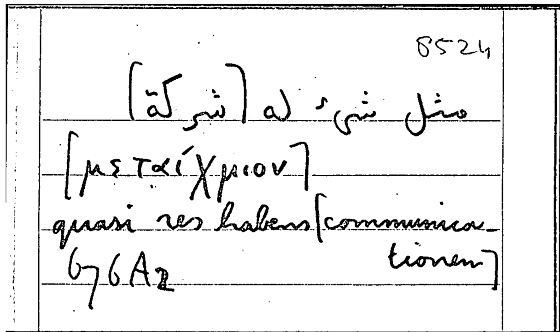 8524
مثل شيء له [شركة]
[μεταίχμιον]
quasi res habens [communica-
tionem]
676A2